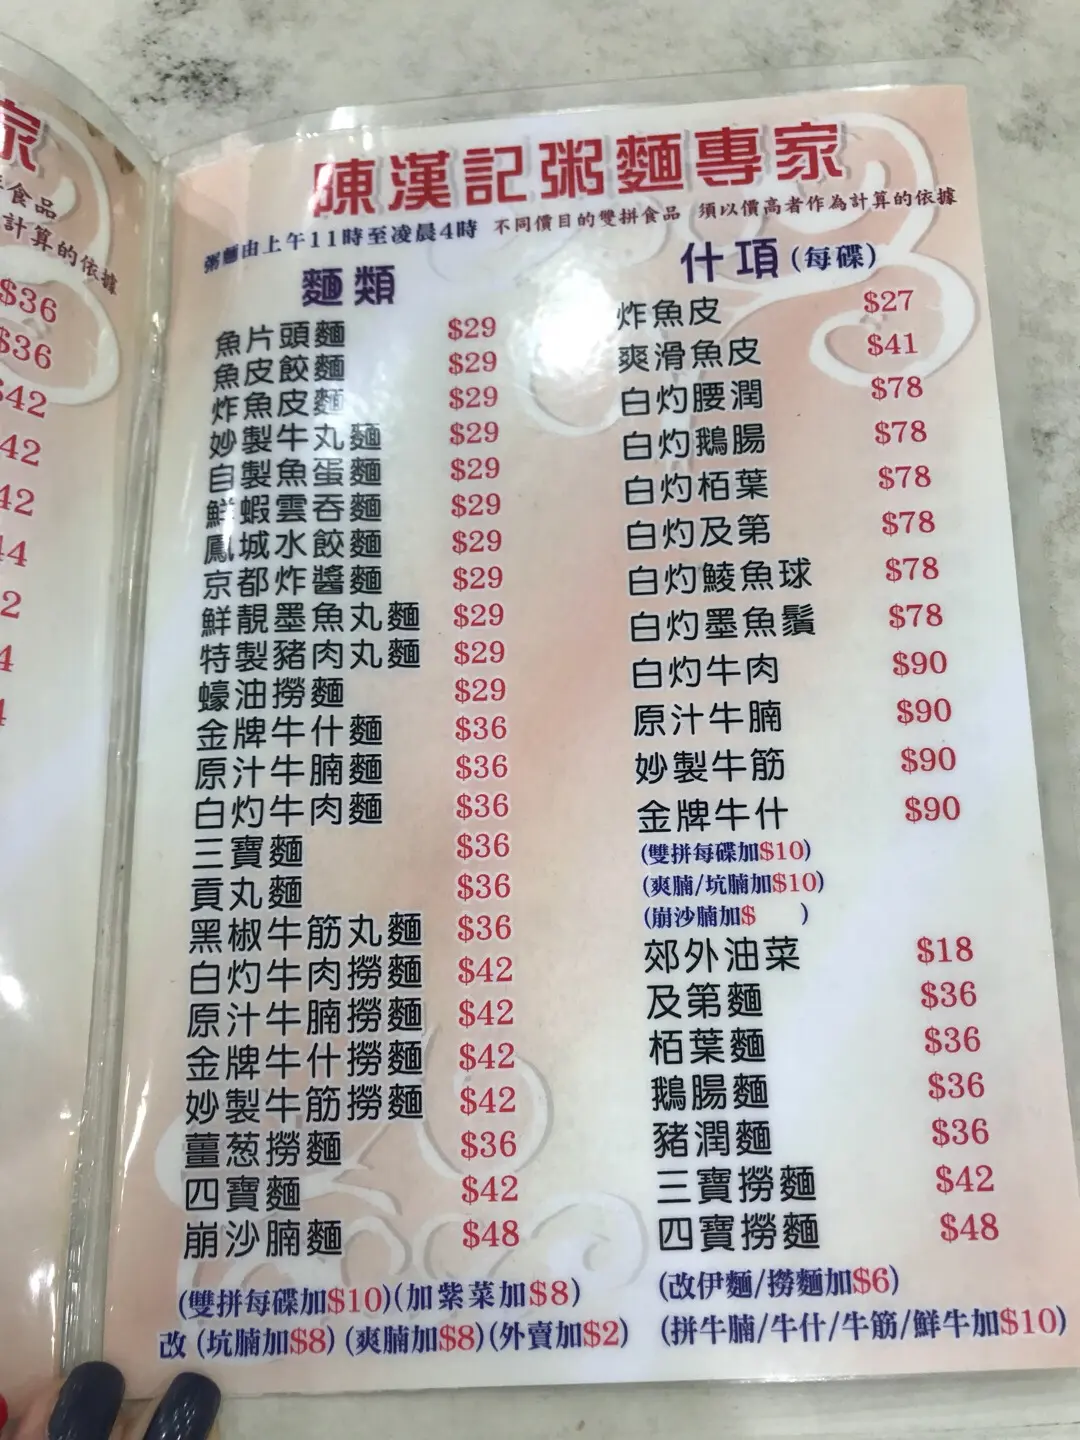 家
食品
計算的依據
$36
$36
$42
42
42
44
2
4
4
陳漢記粥麵專家
粥麵由上午11時至凌晨4時 不同價目的雙拼食品 須以價高者作為計算的依據
麵類
魚片頭麵 $29
魚皮餃麵 $29
炸魚皮麵 $29
妙製牛丸麵 $29
自製魚蛋麵 $29
鮮蝦雲吞麵 $29
鳳城水餃麵 $29
京都炸醬麵 $29
鮮靚墨魚丸麵 $29
特製豬肉丸麵 $29
蠔油撈麵 $29
金牌牛什麵 $36
原汁牛腩麵 $36
白灼牛肉麵 $36
三寶麵 $36
貢丸麵 $36
黑椒牛筋丸麵 $36
白灼牛肉撈麵 $42
原汁牛腩撈麵 $42
金牌牛什撈麵 $42
妙製牛筋撈麵 $42
薑葱撈麵 $36
四寶麵 $42
崩沙腩麵 $48
(雙拼每碟加$10)(加紫菜加$8)
改 (坑腩加$8) (爽腩加$8)(外賣加$2)
什項 (每碟)
炸魚皮 $27
爽滑魚皮 $41
白灼腰潤 $78
白灼鵝腸 $78
白灼栢葉 $78
白灼及第 $78
白灼鯪魚球 $78
白灼墨魚鬚 $78
白灼牛肉 $90
原汁牛腩 $90
妙製牛筋 $90
金牌牛什 $90
(雙拼每碟加$10)
(爽腩/坑腩加$10)
(崩沙腩加$ )
郊外油菜 $18
及第麵 $36
栢葉麵 $36
鵝腸麵 $36
豬潤麵 $36
三寶撈麵 $42
四寶撈麵 $48
(改伊麵/撈麵加$6)
(拼牛腩/牛什/牛筋/鮮牛加$10)